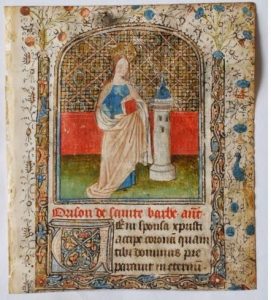 Orison de sainte barbe. ant
Veni sponsa xpisti
acipe coronā quam
tibi dominus pre
parauit in eternū